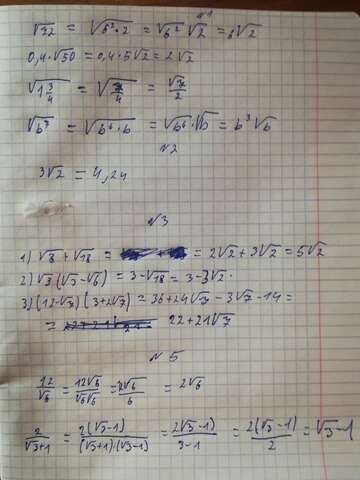 №1
√72 = √6²·2 = √6² √2 = 6√2
0,4·√50 = 0,4·5√2 = 2√2
√1 3/4 = √7/4 = √7/2
√b⁷ = √b⁶·b = √b⁶·√b = b³√b
№2
3√2 = 4,24
№3
1) √8 + √18 = = 2√2 + 3√2 = 5√2
2) √3 (√3 - √6) = 3 - √18 = 3 - 3√2.
3) (12 - √7) (3 + 2√7) = 36 + 24√7 - 3√7 - 14 =
= 22 + 21√7
№5
12/√6 = 12√6/√6√6 = 12√6/6 = 2√6
2/√3+1 = 2(√3-1)/(√3+1)·(√3-1) = 2(√3-1)/3-1 = 2(√3-1)/2 = √3-1